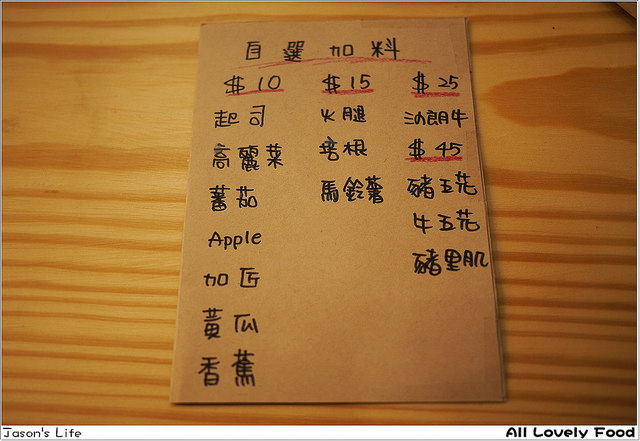 自選加料
$10
起司
高麗菜
蕃茄
Apple
加匠
黃瓜
香蕉
$15
火腿
培根
馬鈴薯
$25
沙朗牛
$45
豬五花
牛五花
豬里肌
Jason's Life
All Lovely Food